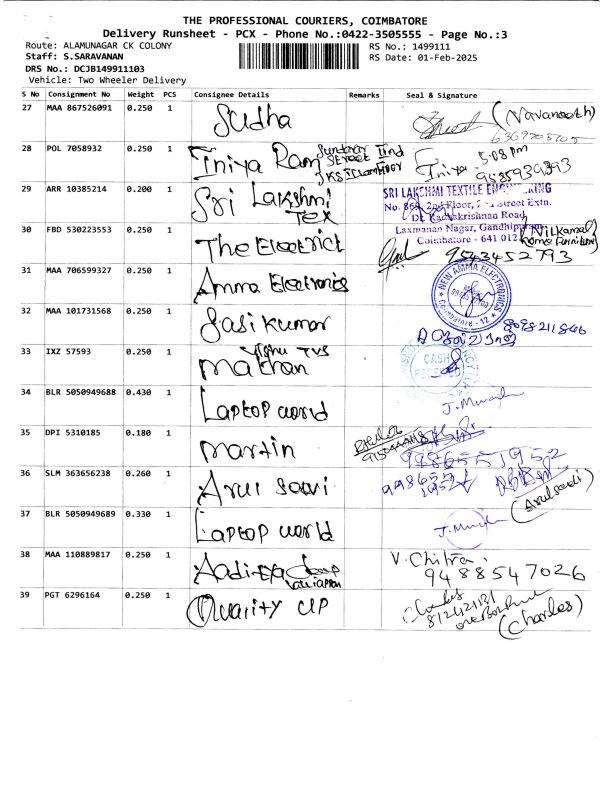 THE PROFESSIONAL COURIERS, COIMBATORE
Delivery Runsheet - PCX - Phone No.:0422-3505555 - Page No.:3
Route: ALAMUNAGAR CK COLONY
RS No.: 1499111
Staff: S.SARAVANAN
RS Date: 01-Feb-2025
DRS No.: DCJB149911103
Vehicle: Two Wheeler Delivery
S No Consignment No Weight PCS Consignee Details Remarks Seal & Signature
27 MAA 867526091 0.250 1 Sudha (Navaneeth)
28 POL 7058932 0.250 1 Iniya Ram Iniya 5.08 pm
29 ARR 10385214 0.200 1 Sri Lakshmi Tex
SRI LAKSHMI TEXTILE
2nd Floor, Street Extn.
Road,
Laxmanan Nagar,
Coimbatore - 641 012
30 FBD 530223553 0.250 1 The Electrict (Nilkamal home furniture)
9543452793
31 MAA 706599327 0.250 1 Amma Electronics
NEW AMMA ELECTRONICS
Coimbatore - 12
32 MAA 101731568 0.250 1 Sasi kumar
33 IXZ 57593 0.250 1 Vishu TVS
Mathan
CASH
RECEIVED
34 BLR 5050949688 0.430 1 Laptop world
35 DPI 5310185 0.180 1 Martin
9986551952
36 SLM 363656238 0.260 1 Arul
37 BLR 5050949689 0.330 1 Laptop world
38 MAA 110889817 0.250 1 Aaditya V. Chitra.
9488547026
39 PGT 6296164 0.250 1 Quality UP
(Charles)